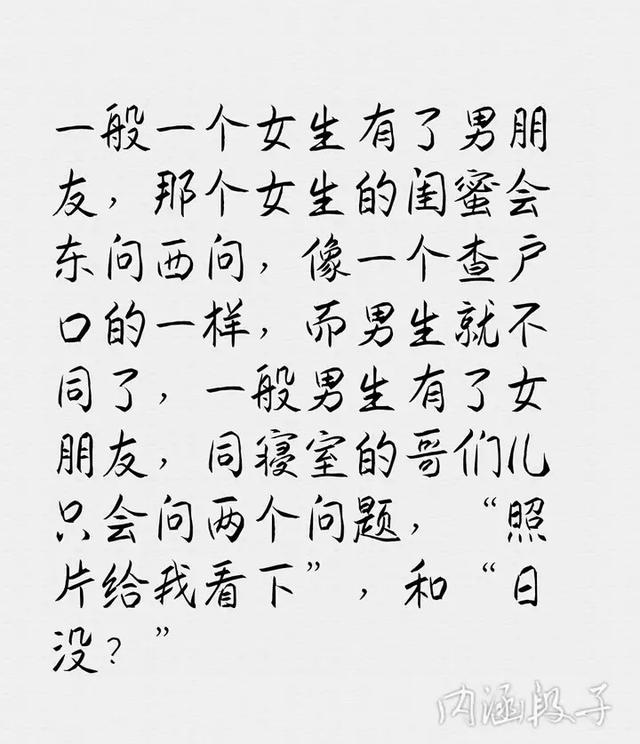 一般一个女生有了男朋
友，那个女生的闺蜜会
东问西问，像一个查户
口的一样，而男生就不
同了，一般男生有了女
朋友，同寝室的哥们儿
只会问两个问题，“照
片给我看下”，和“日
没？”
内涵段子